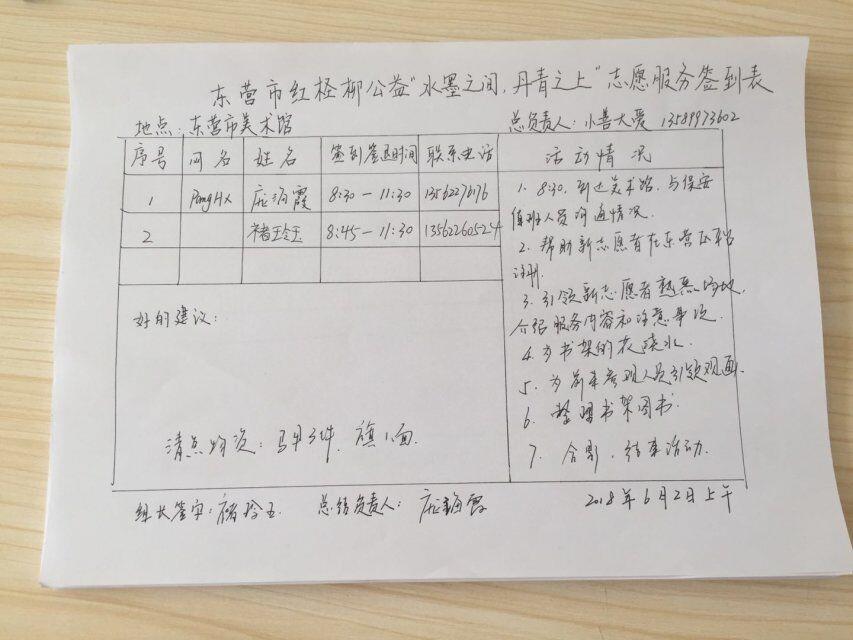 东营市红柽柳公益"水墨之间,丹青之上"志愿服务签到表
地点:东营市美术馆 总负责人:小善大爱 13589973602
序号 网名 姓名 签到签退时间 联系电话 活动情况
1 霞 8:30—11:30
2 褚玲玉 8:45—11:30 13562260524
1. 8:30,到达美术馆,与保安
值班人员沟通情况.
2. 帮助新志愿者在东营
注册.
3. 引领新志愿者熟悉场地,
介绍服务内容和注意事项.
4. 为书架的花浇水.
5. 为前来参观人员引领观画.
6. 整理书架图书.
7. 合影,结束活动.
好的建议:
清点物资:马甲3件,旗1面.
组长签字:褚玲玉 总结负责人: 霞 2018年6月2日上午